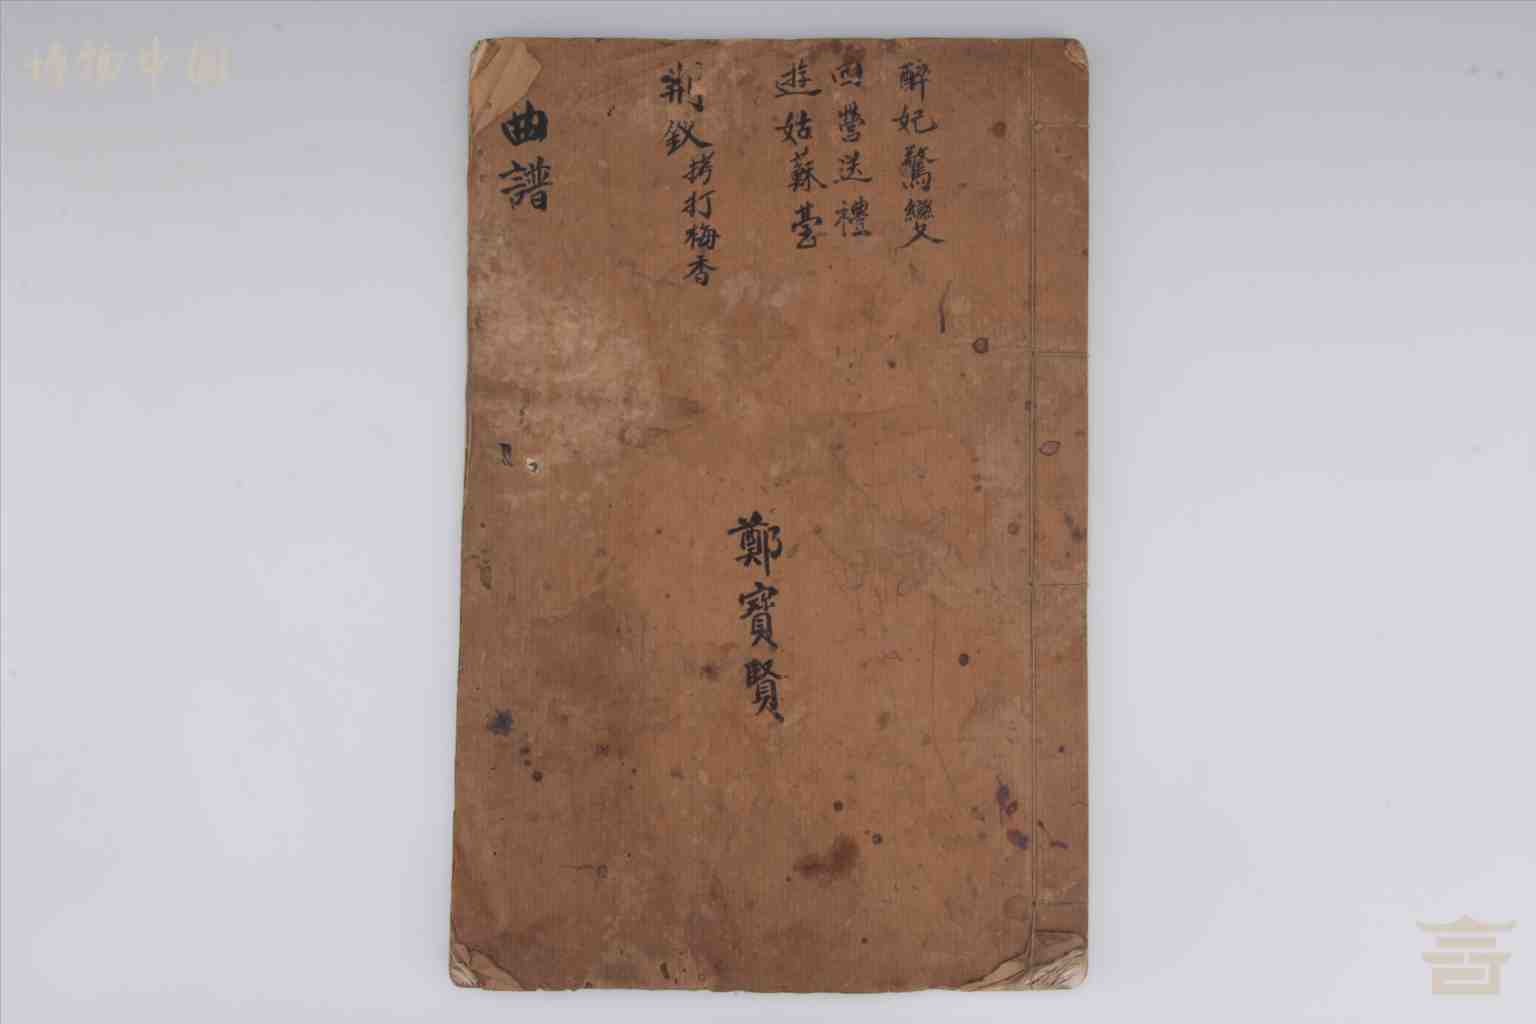 醉妃驚變
回營送禮
遊姑蘇臺
荆釵拷打梅香
曲譜
鄭寶賢
博物中国